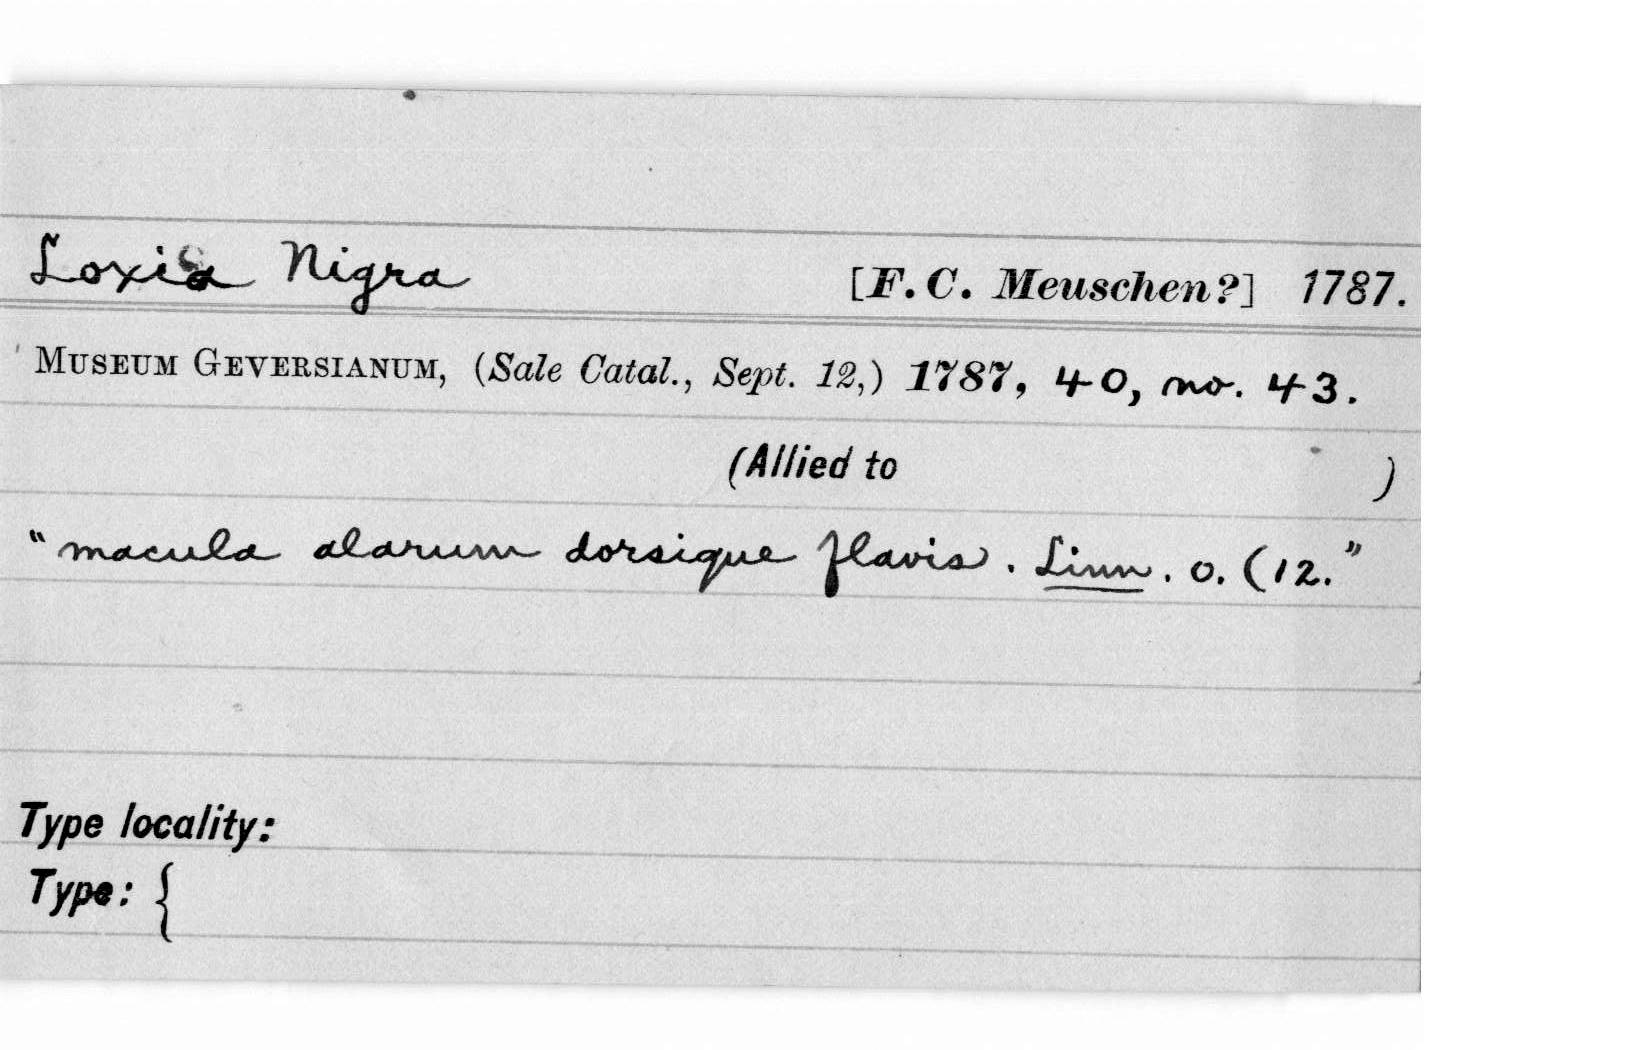 Loxia Nigra [F. C. Meuschen?] 1787.
MUSEUM GEVERSIANUM, (Sale Catal., Sept. 12,) 1787, 40, no. 43.
(Allied to )
"macula alarum dorsique flavis. Linn. o. (12."
Type locality:
Type: {